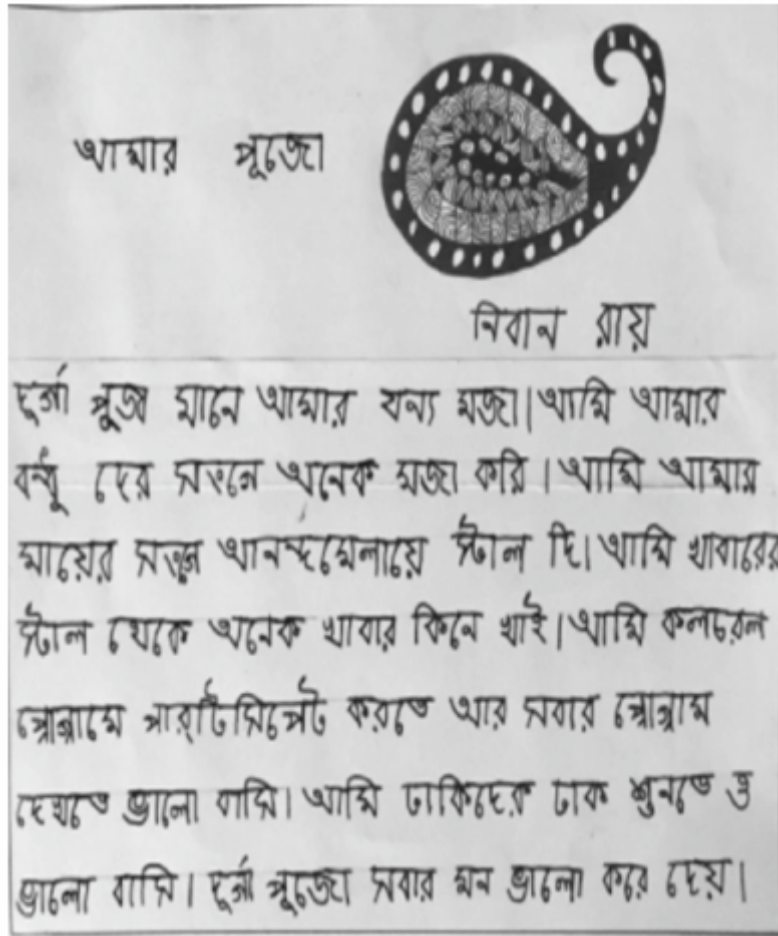 আমার পূজো
নিবান রায়
দূর্গা পুজা মানে আমার যন্য মজা। আমি আমার
বন্ধু দের সঙ্গে অনেক মজা করি। আমি আমার
মায়ের সঙ্গে আনন্দমেলায়ে স্টাল দি। আমি খাবারের
স্টাল থেকে অনেক খাবার কিনে খাই। আমি কলচরেল
প্রোগ্রামে পার্টিসিপেট করতে আর সবার প্রোগ্রাম
দেখতে ভালো বাসি। আমি ঢাকিদের ঢাক শুনতে ও
ভালো বাসি। দূর্গা পূজো সবার মন ভালো করে দেয়।